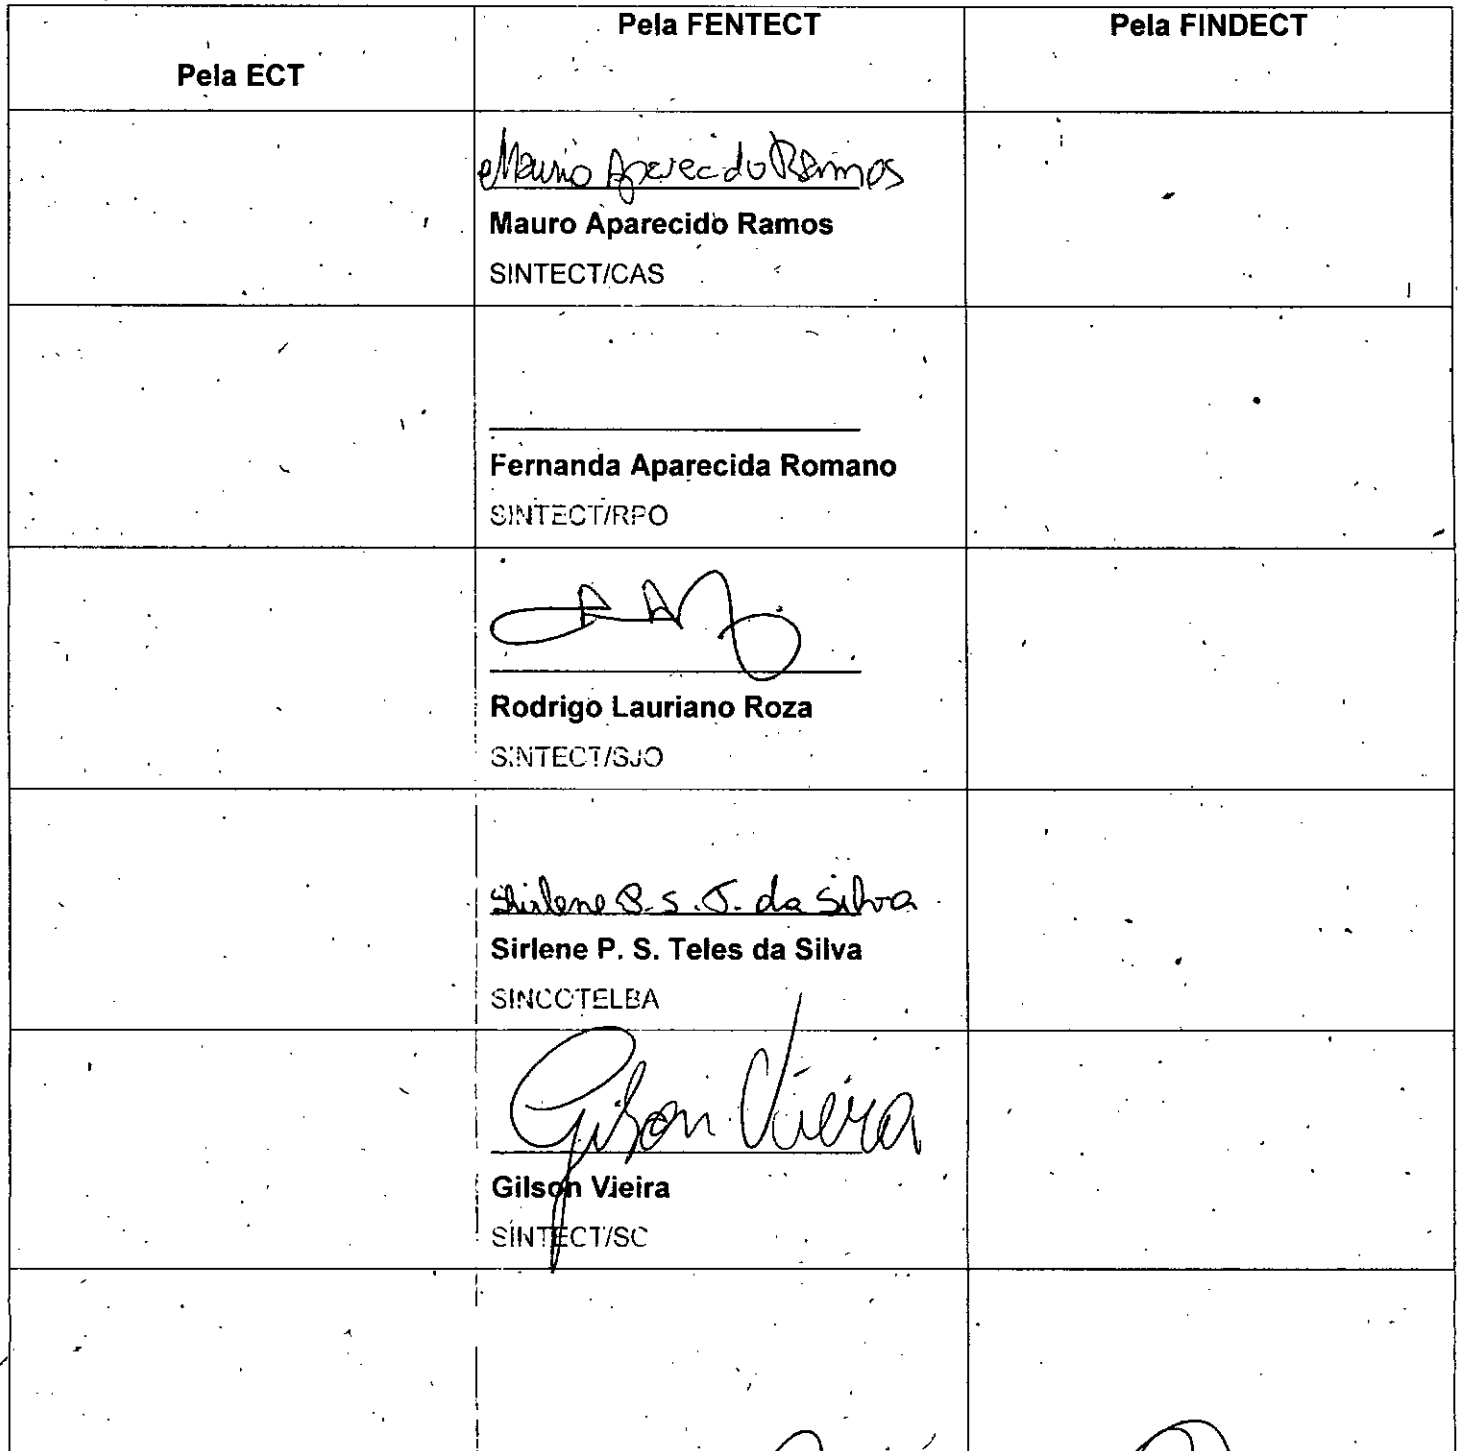 Pela ECT
Pela FENTECT
Pela FINDECT
Mauro Aparecido Ramos
Mauro Aparecido Ramos
SINTECT/CAS
Fernanda Aparecida Romano
SINTECT/RPO
Rodrigo Lauriano Roza
SINTECT/SJO
Shirlene P. S. T. da Silva
Sirlene P. S. Teles da Silva
SINCOTELBA
Gilson Vieira
Gilson Vieira
SINTECT/SC